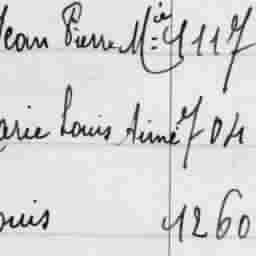 Jean Pierre M.ie 1117
arie Louis Aimé 704
ouis 1260